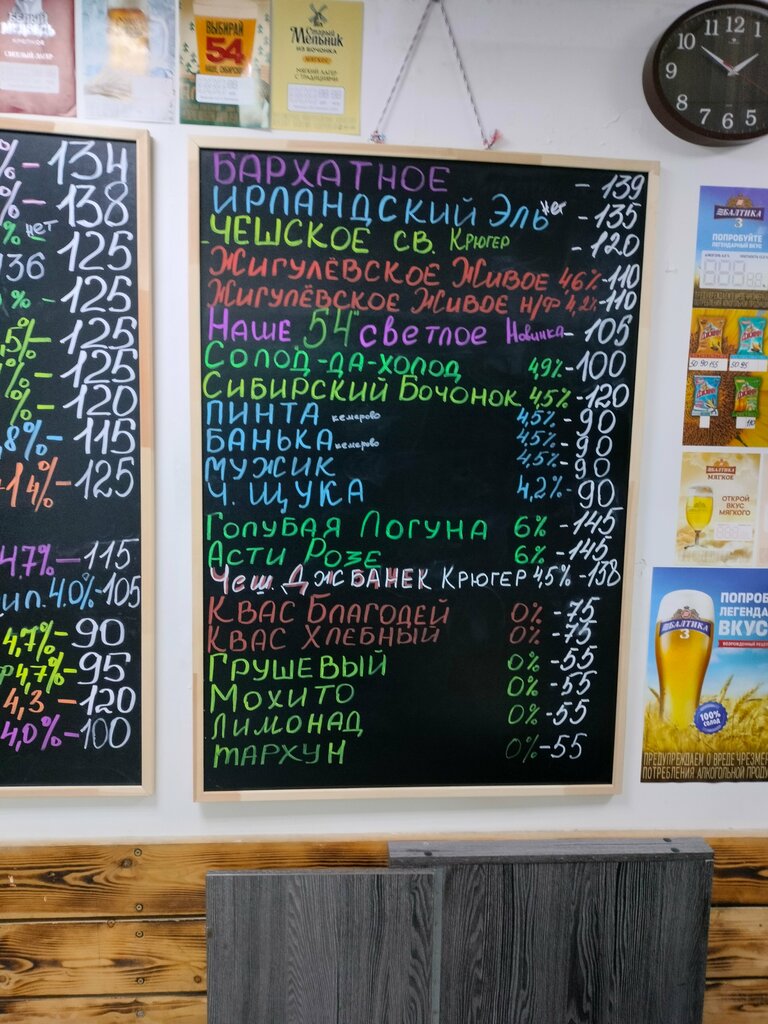 ВЫБИРАЙ
54
Старый
Мельник
ИЗ БОЧОНКА
МЯГКОЕ
МЯГКИЙ ЛАГЕР
С ТРАДИЦИЯМИ
% – 134
% – 138
% нет 125
136
% – 125
,5% – 125
% – 125
% – 120
,8% – 115
14% – 125
4.7% – 115
4.0% – 105
4,7% – 90
4,7% – 95
4,3 – 120
4,0% – 100
БАРХАТНОЕ – 139
ИРЛАНДСКИЙ ЭЛЬ нет – 135
ЧЕШСКОЕ СВ. КРЮГЕР – 120
ЖИГУЛЁВСКОЕ ЖИВОЕ 4.6% – 110
ЖИГУЛЁВСКОЕ ЖИВОЕ Н/Ф 4,2% – 110
НАШЕ 54 СВЕТЛОЕ Новинка – 105
СОЛОД-ДА-ХОЛОД 4,9% – 100
СИБИРСКИЙ БОЧОНОК 4,5% – 120
ПИНТА кемерово 4,5% – 90
БАНЬКА кемерово 4,5% – 90
МУЖИК 4,5% – 90
Ч. ЩУКА 4,2% – 90
ГОЛУБАЯ ЛОГУНА 6% – 145
АСТИ РОЗЕ 6% – 145
ЧЕШ. ДЖБАНЕК КРЮГЕР 4,5% – 138
КВАС БЛАГОДЕЙ 0% – 75
КВАС ХЛЕБНЫЙ 0% – 75
ГРУШЕВЫЙ 0% – 55
МОХИТО 0% – 55
ЛИМОНАД 0% – 55
ТАРХУН 0% – 55
10 11 12 1 2 3 4 5 6 7 8 9
БАЛТИКА
3
ПОПРОБУЙТЕ
ЛЕГЕНДАРНЫЙ ВКУС
БАЛТИКА
МЯГКОЕ
ОТКРОЙ
ВКУС
МЯГКОГО
БАЛТИКА
3
ПОПРОБ
ЛЕГЕНДА
ВКУС
100%
СОЛОД
ПРЕДУПРЕЖДАЕМ О ВРЕДЕ ЧРЕЗМЕР
ПОТРЕБЛЕНИЯ АЛКОГОЛЬНОЙ ПРОДУ